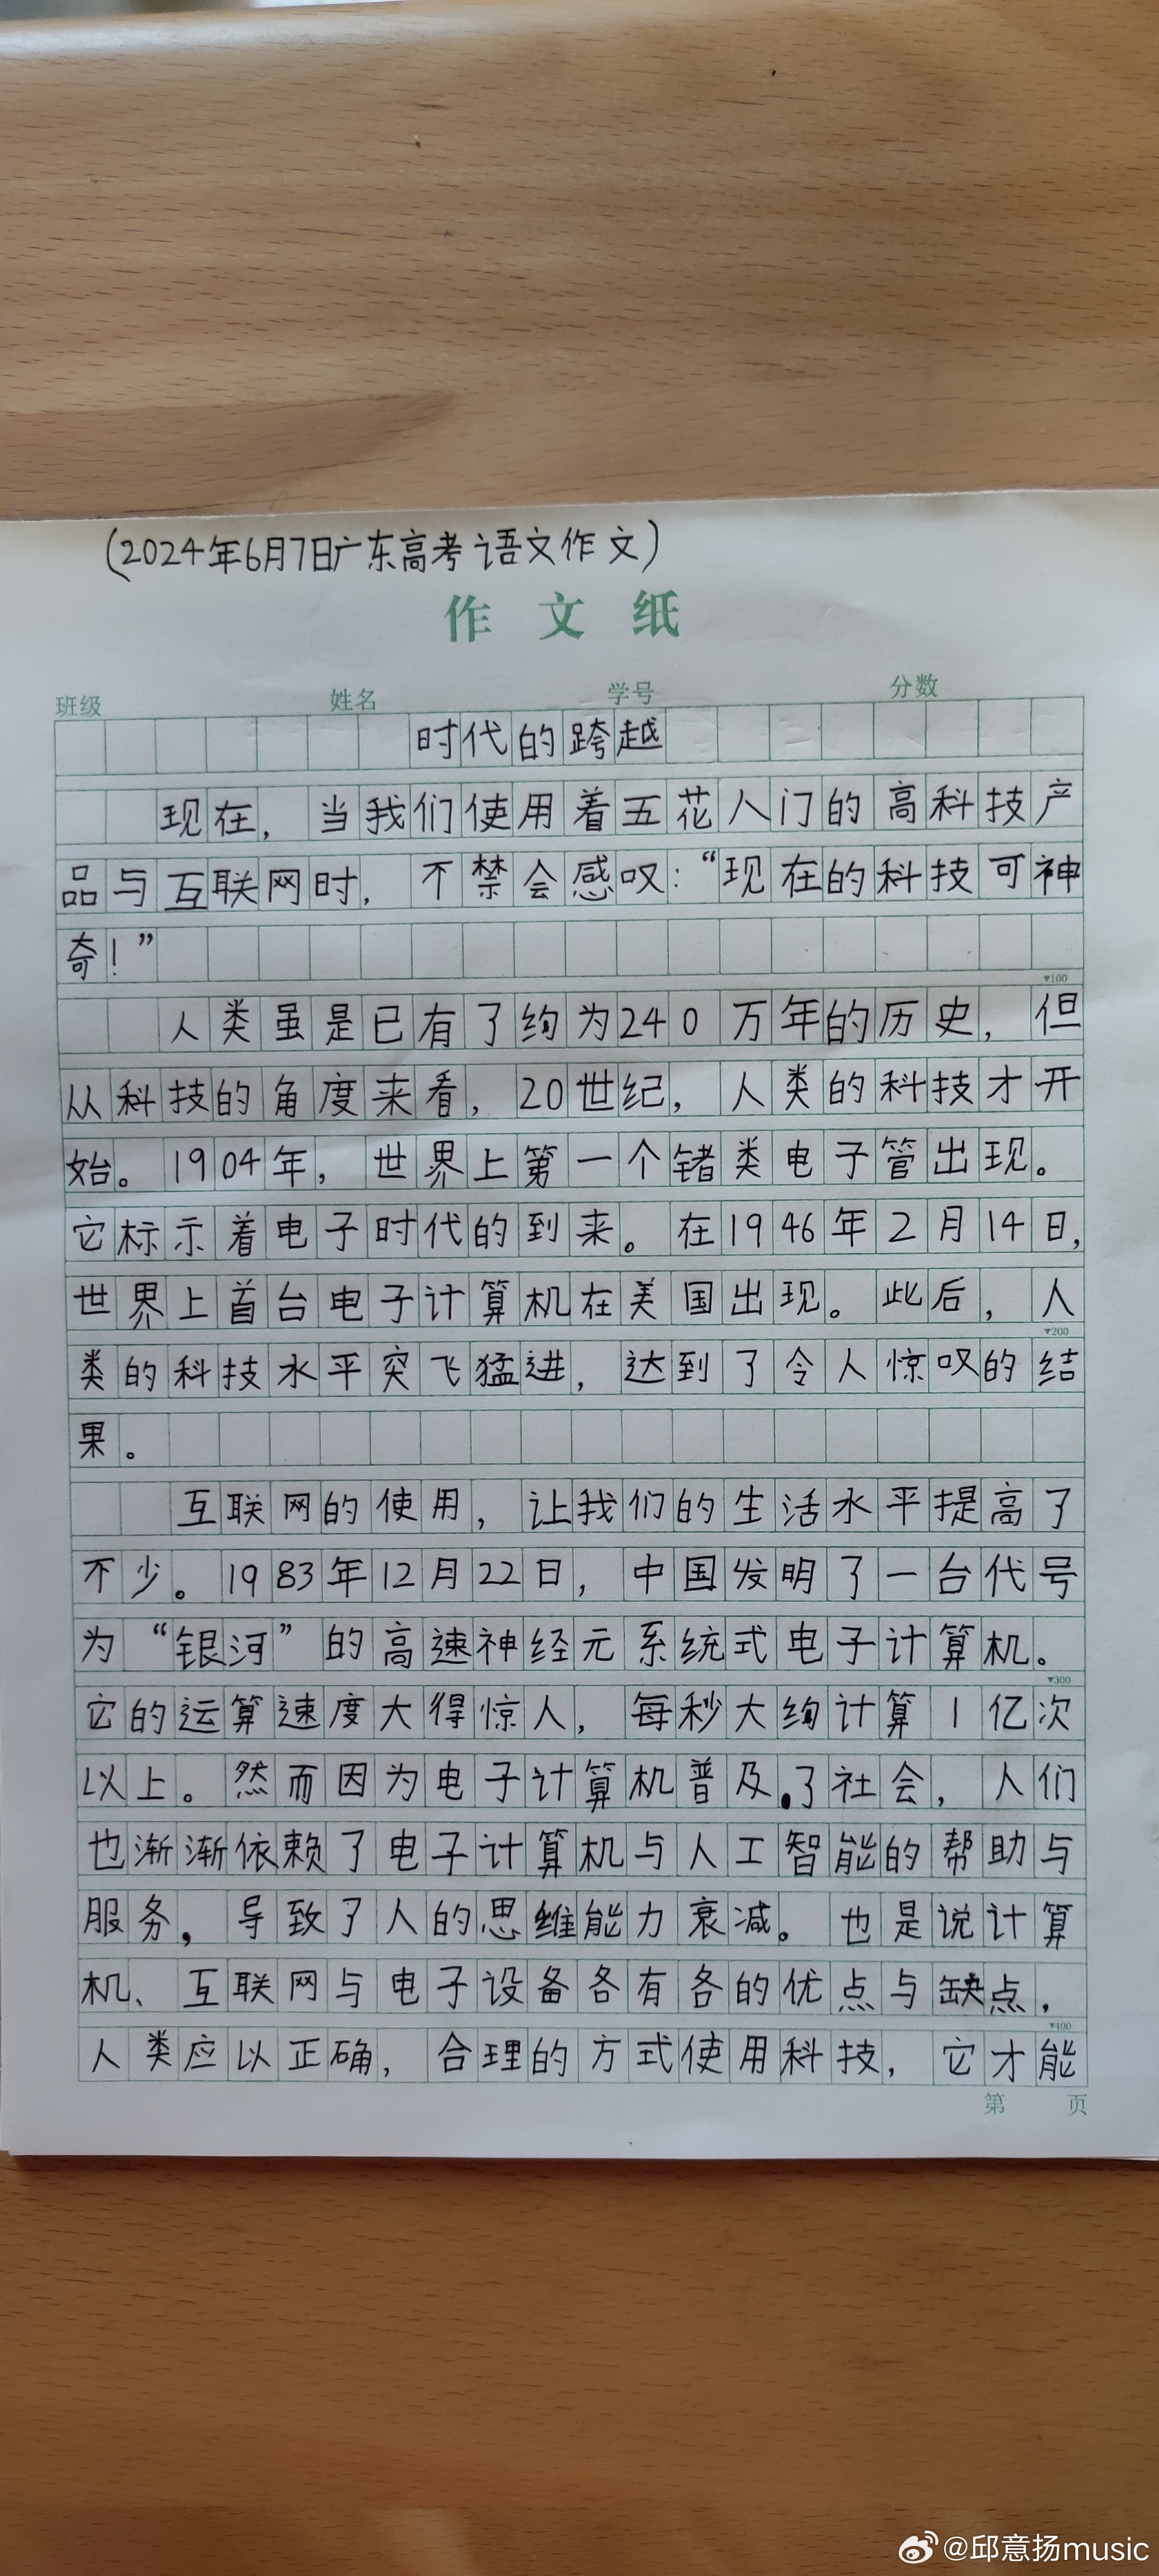 (2024年6月7日广东高考语文作文)
作文纸
班级 姓名 学号 分数
时代的跨越
现在，当我们使用着五花人门的高科技产
品与互联网时，不禁会感叹：“现在的科技可神
奇！”
▾100
人类虽是已有了约为240万年的历史，但
从科技的角度来看，20世纪，人类的科技才开
始。1904年，世界上第一个锗类电子管出现。
它标示着电子时代的到来。在1946年2月14日，
世界上首台电子计算机在美国出现。此后，人
▾200
类的科技水平突飞猛进，达到了令人惊叹的结
果。
互联网的使用，让我们的生活水平提高了
不少。1983年12月22日，中国发明了一台代号
为“银河”的高速神经元系统式电子计算机。
▾300
它的运算速度大得惊人，每秒大约计算1亿次
以上。然而因为电子计算机普及了社会，人们
也渐渐依赖了电子计算机与人工智能的帮助与
服务，导致了人的思维能力衰减。也是说计算
机、互联网与电子设备各有各的优点与缺点，
▾400
人类应以正确，合理的方式使用科技，它才能
第 页
@邱意扬music